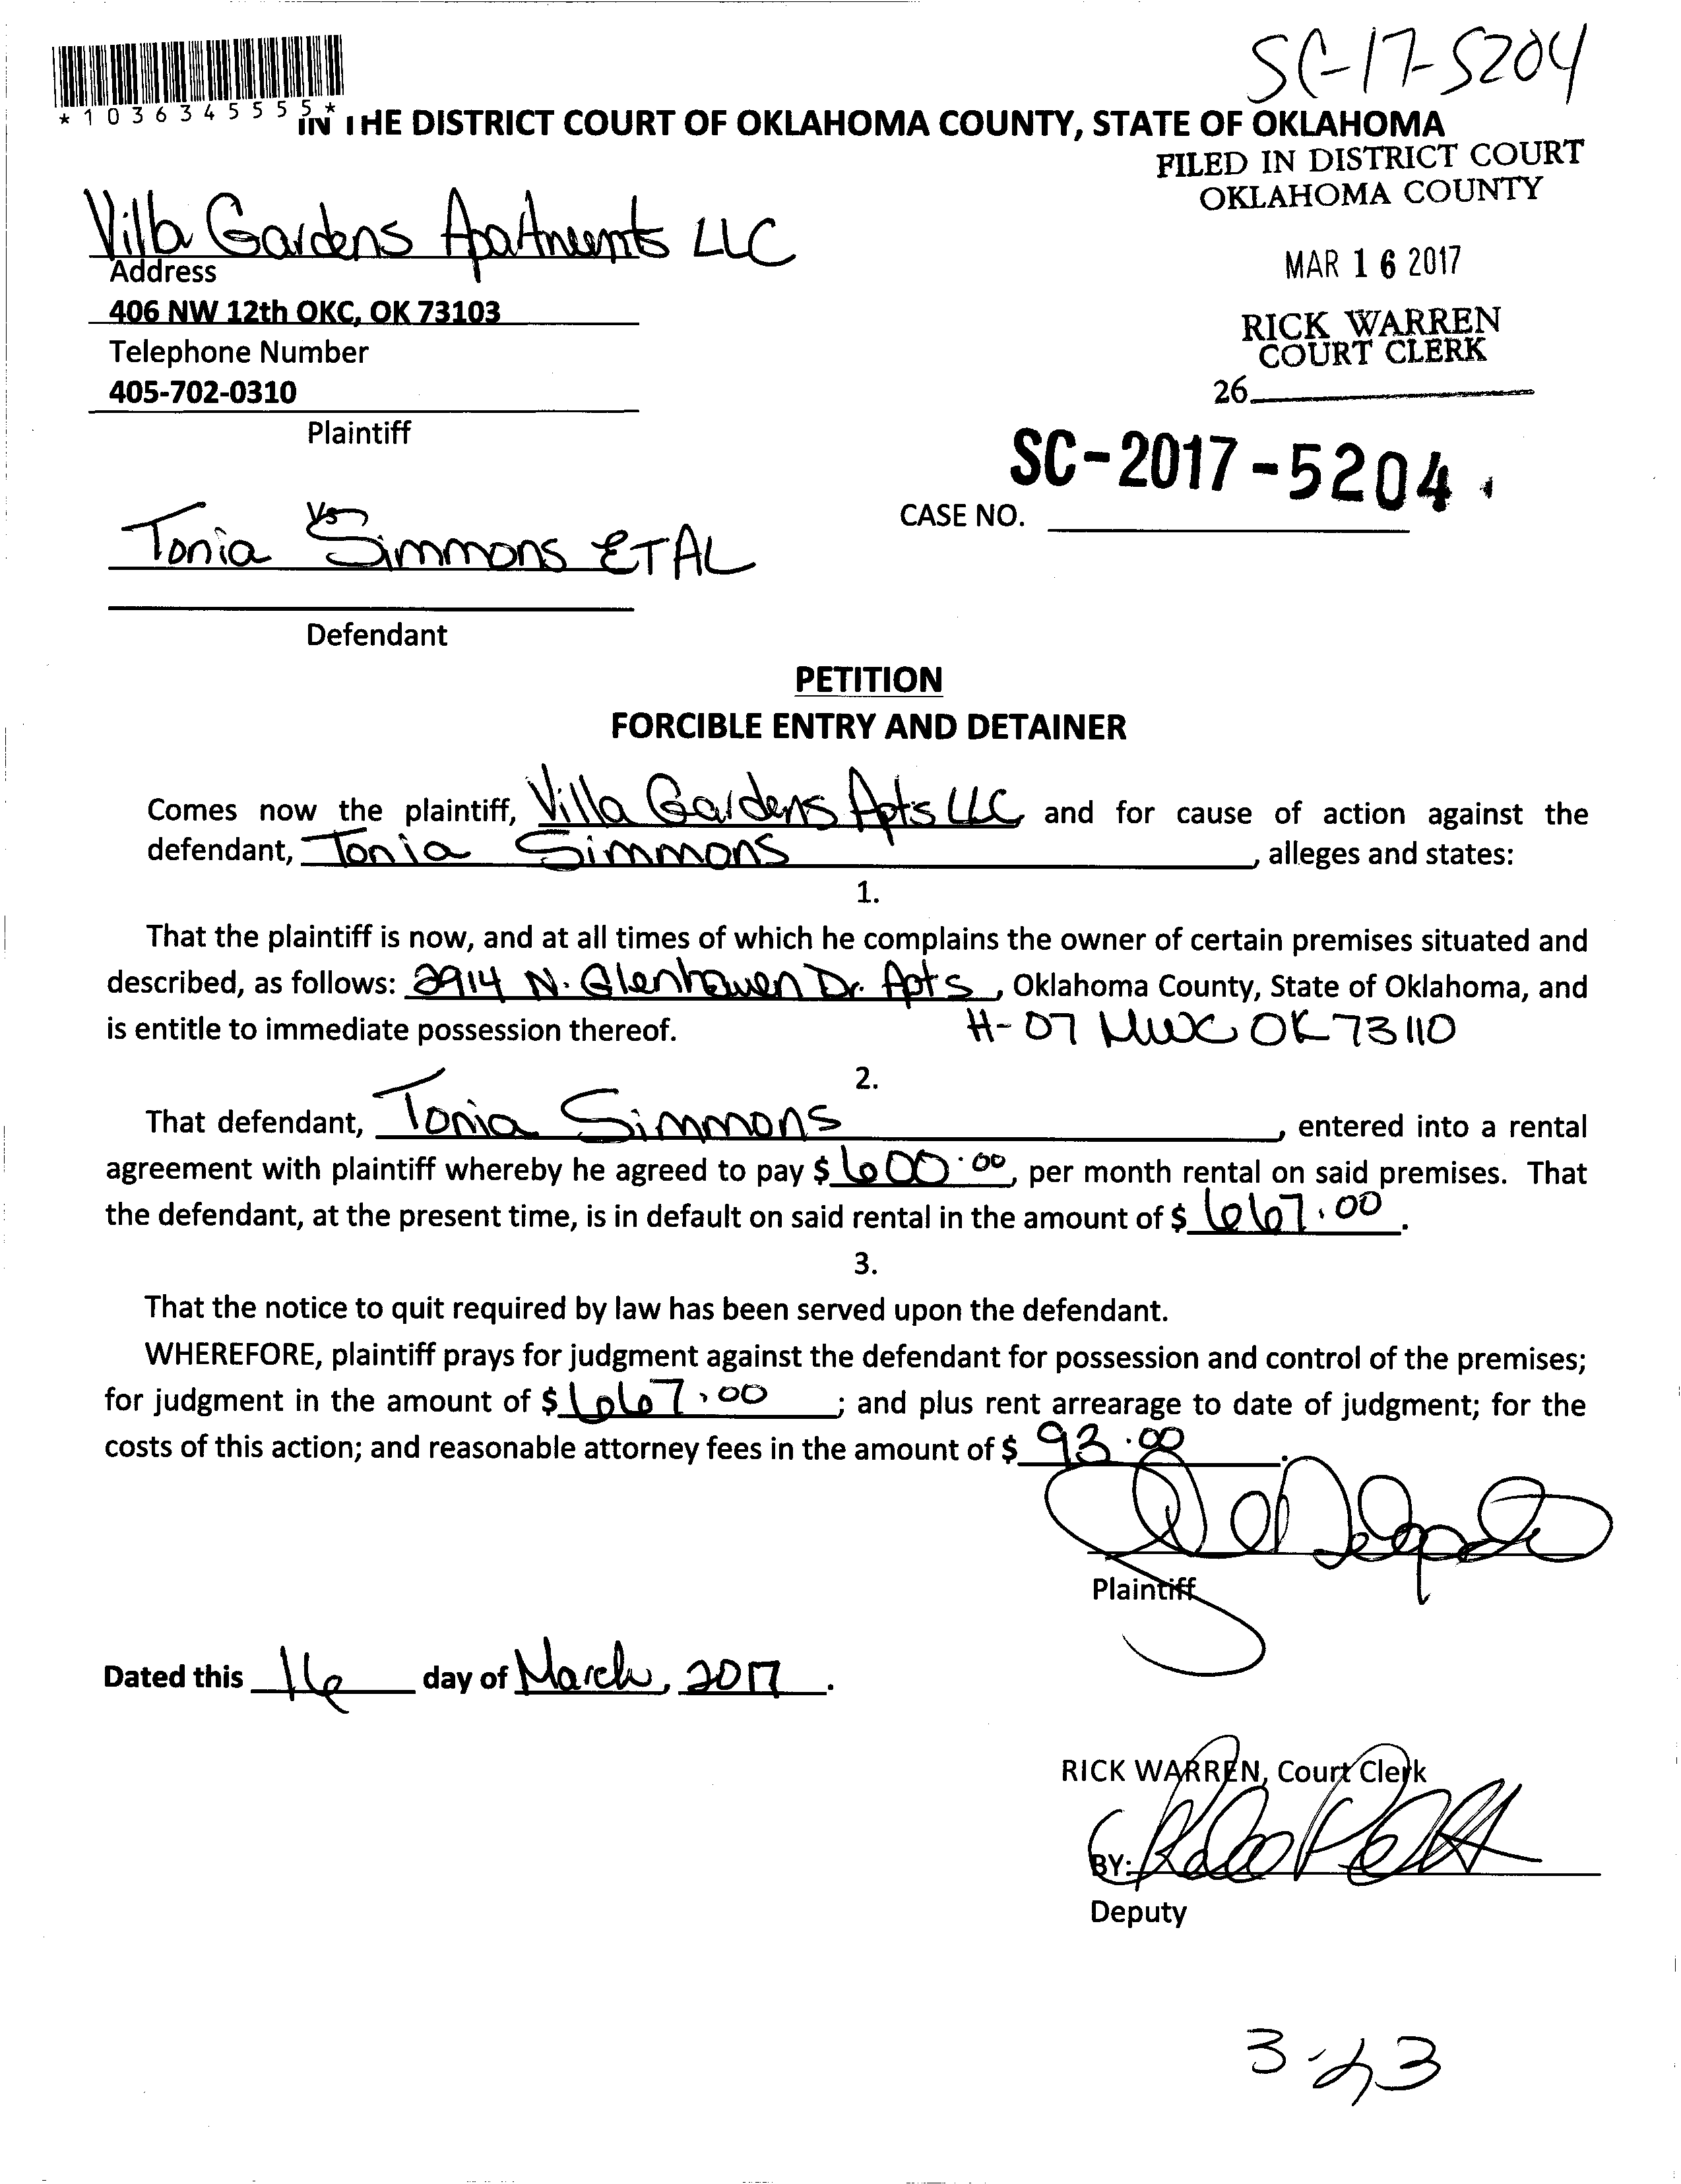 SC-17-5204
*1036345555*
IN THE DISTRICT COURT OF OKLAHOMA COUNTY, STATE OF OKLAHOMA
FILED IN DISTRICT COURT
OKLAHOMA COUNTY
MAR 16 2017
RICK WARREN
COURT CLERK
26
Villa Gardens Apartments LLC
Address
406 NW 12th OKC, OK 73103
Telephone Number
405-702-0310
Plaintiff
SC-2017-5204
CASE NO.
Vs
Tonia Simmons ETAL
Defendant
PETITION
FORCIBLE ENTRY AND DETAINER
Comes now the plaintiff, Villa Gardens Apts LLC and for cause of action against the
defendant, Tonia Simmons, alleges and states:
1.
That the plaintiff is now, and at all times of which he complains the owner of certain premises situated and
described, as follows: 2914 N. Glenhaven Dr. Apts, Oklahoma County, State of Oklahoma, and
is entitle to immediate possession thereof. H-07 MWC OK 73110
2.
That defendant, Tonia Simmons, entered into a rental
agreement with plaintiff whereby he agreed to pay $ 600.00, per month rental on said premises. That
the defendant, at the present time, is in default on said rental in the amount of $ 667.00.
3.
That the notice to quit required by law has been served upon the defendant.
WHEREFORE, plaintiff prays for judgment against the defendant for possession and control of the premises;
for judgment in the amount of $ 667.00; and plus rent arrearage to date of judgment; for the
costs of this action; and reasonable attorney fees in the amount of $ 93.00.
Plaintiff
Dated this 16 day of March, 2017.
RICK WARREN, Court Clerk
BY:
Deputy
3-23